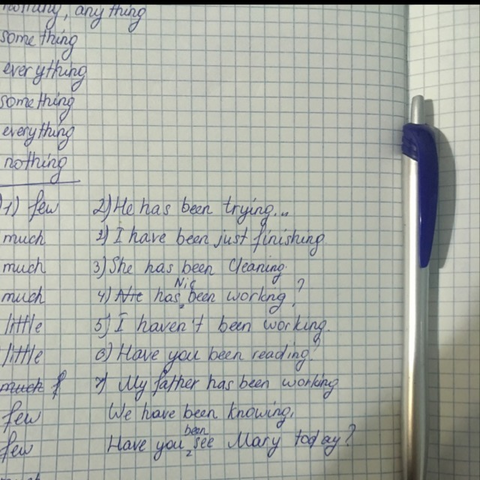 nothing, anything
something
everything
something
everything
nothing
1) few 2) He has been trying...
much 2) I have been just finishing
much 3) She has been Cleaning
much 4) has Nic been workng?
little 5) I haven't been working.
little 6) Have you been reading?
much 7) My father has been working
few We have been knowing,
few Have you been see Mary today?